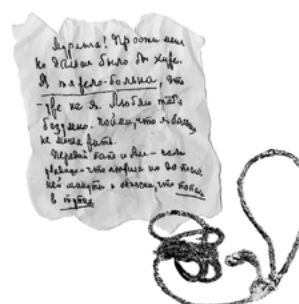 Мурлыга! Прости меня
но дальше было бы хуже.
Я тяжело-больна, это
уже не я. Люблю тебя
безумно. Пойми, что я больше
не могла жить.
Передай папе и Але - если
увидишь - что любила их до послед
ней минуты и объясни, что попала
в тупик